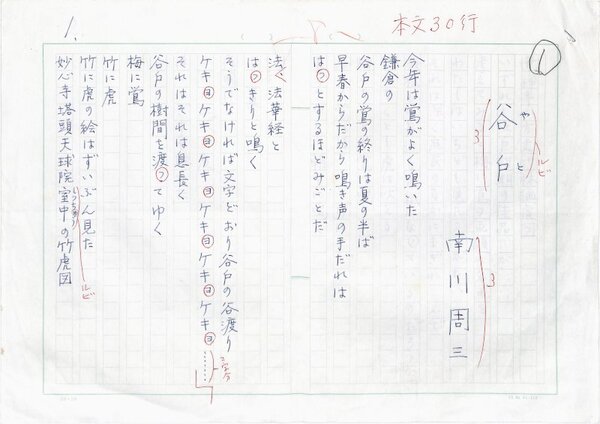 1.
本文30行
①
谷戸
やと
ルビ
3
南川周三
3
今年は鶯がよく鳴いた
鎌倉の
谷戸の鶯の終りは夏の半ば
早春からだから鳴き声の手だれは
はっとするほどみごとだ
法、法華経と
はっきりと鳴く
そうでなければ文字どおり谷戸の谷渡り
ケキョケキョケキョケキョケキョ……
それはそれは息長く
谷戸の樹間を渡ってゆく
梅に鶯
竹に虎
竹に虎の絵はずいぶん見た
妙心寺塔頭天球院室中の竹虎図
しっちゅう
ルビ